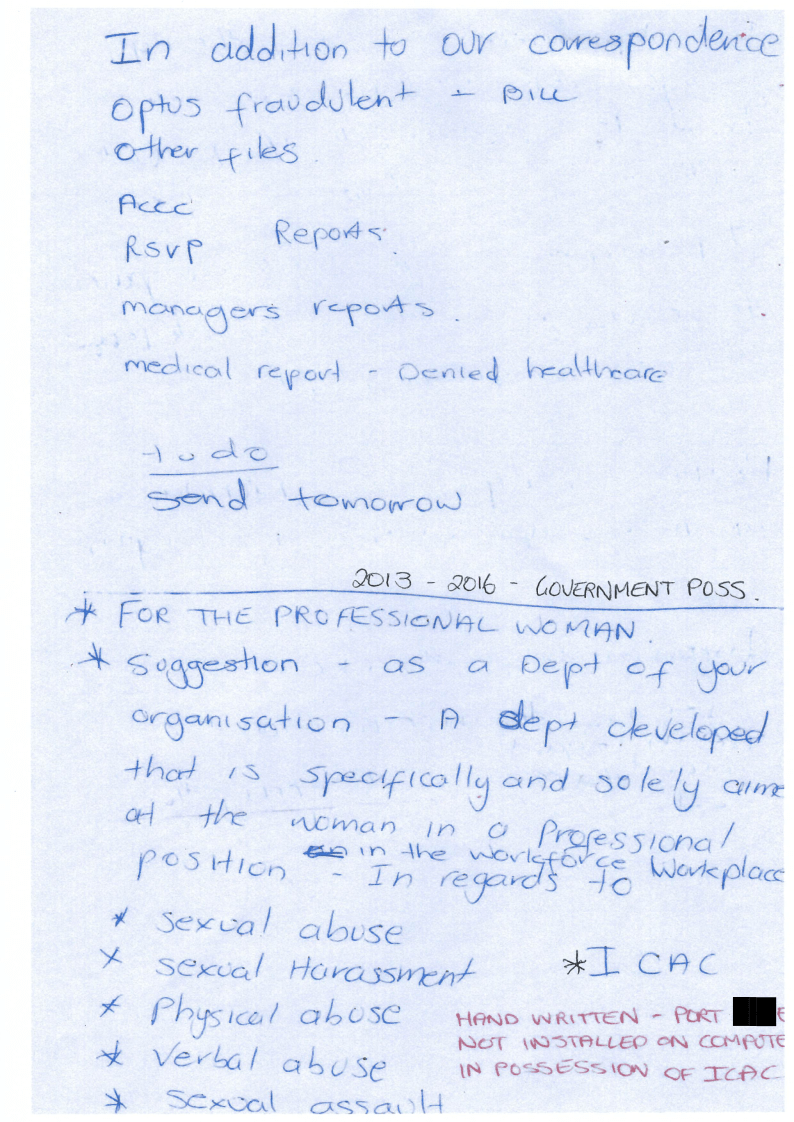 In addition to our correspondence
Optus fraudulent - BILL
Other files.
ACCC
RSVP Reports.
managers reports.
medical report - Denied healthcare
to do
Send tomorrow!
2013 - 2016 - GOVERNMENT POSS.
* FOR THE PROFESSIONAL WOMAN.
* Suggestion - as a Dept of your
organisation - A dept developed
that is specifically and solely aime
at the woman in a Professional
position in the workforce Workplace
- In regards to
* Sexual abuse
* Sexual Harassment
* I CAC
* Physical abuse
HAND WRITTEN - PORT E
NOT INSTALLED ON COMPUTE
* Verbal abuse
IN POSSESSION OF ICAC
* Sexual assault